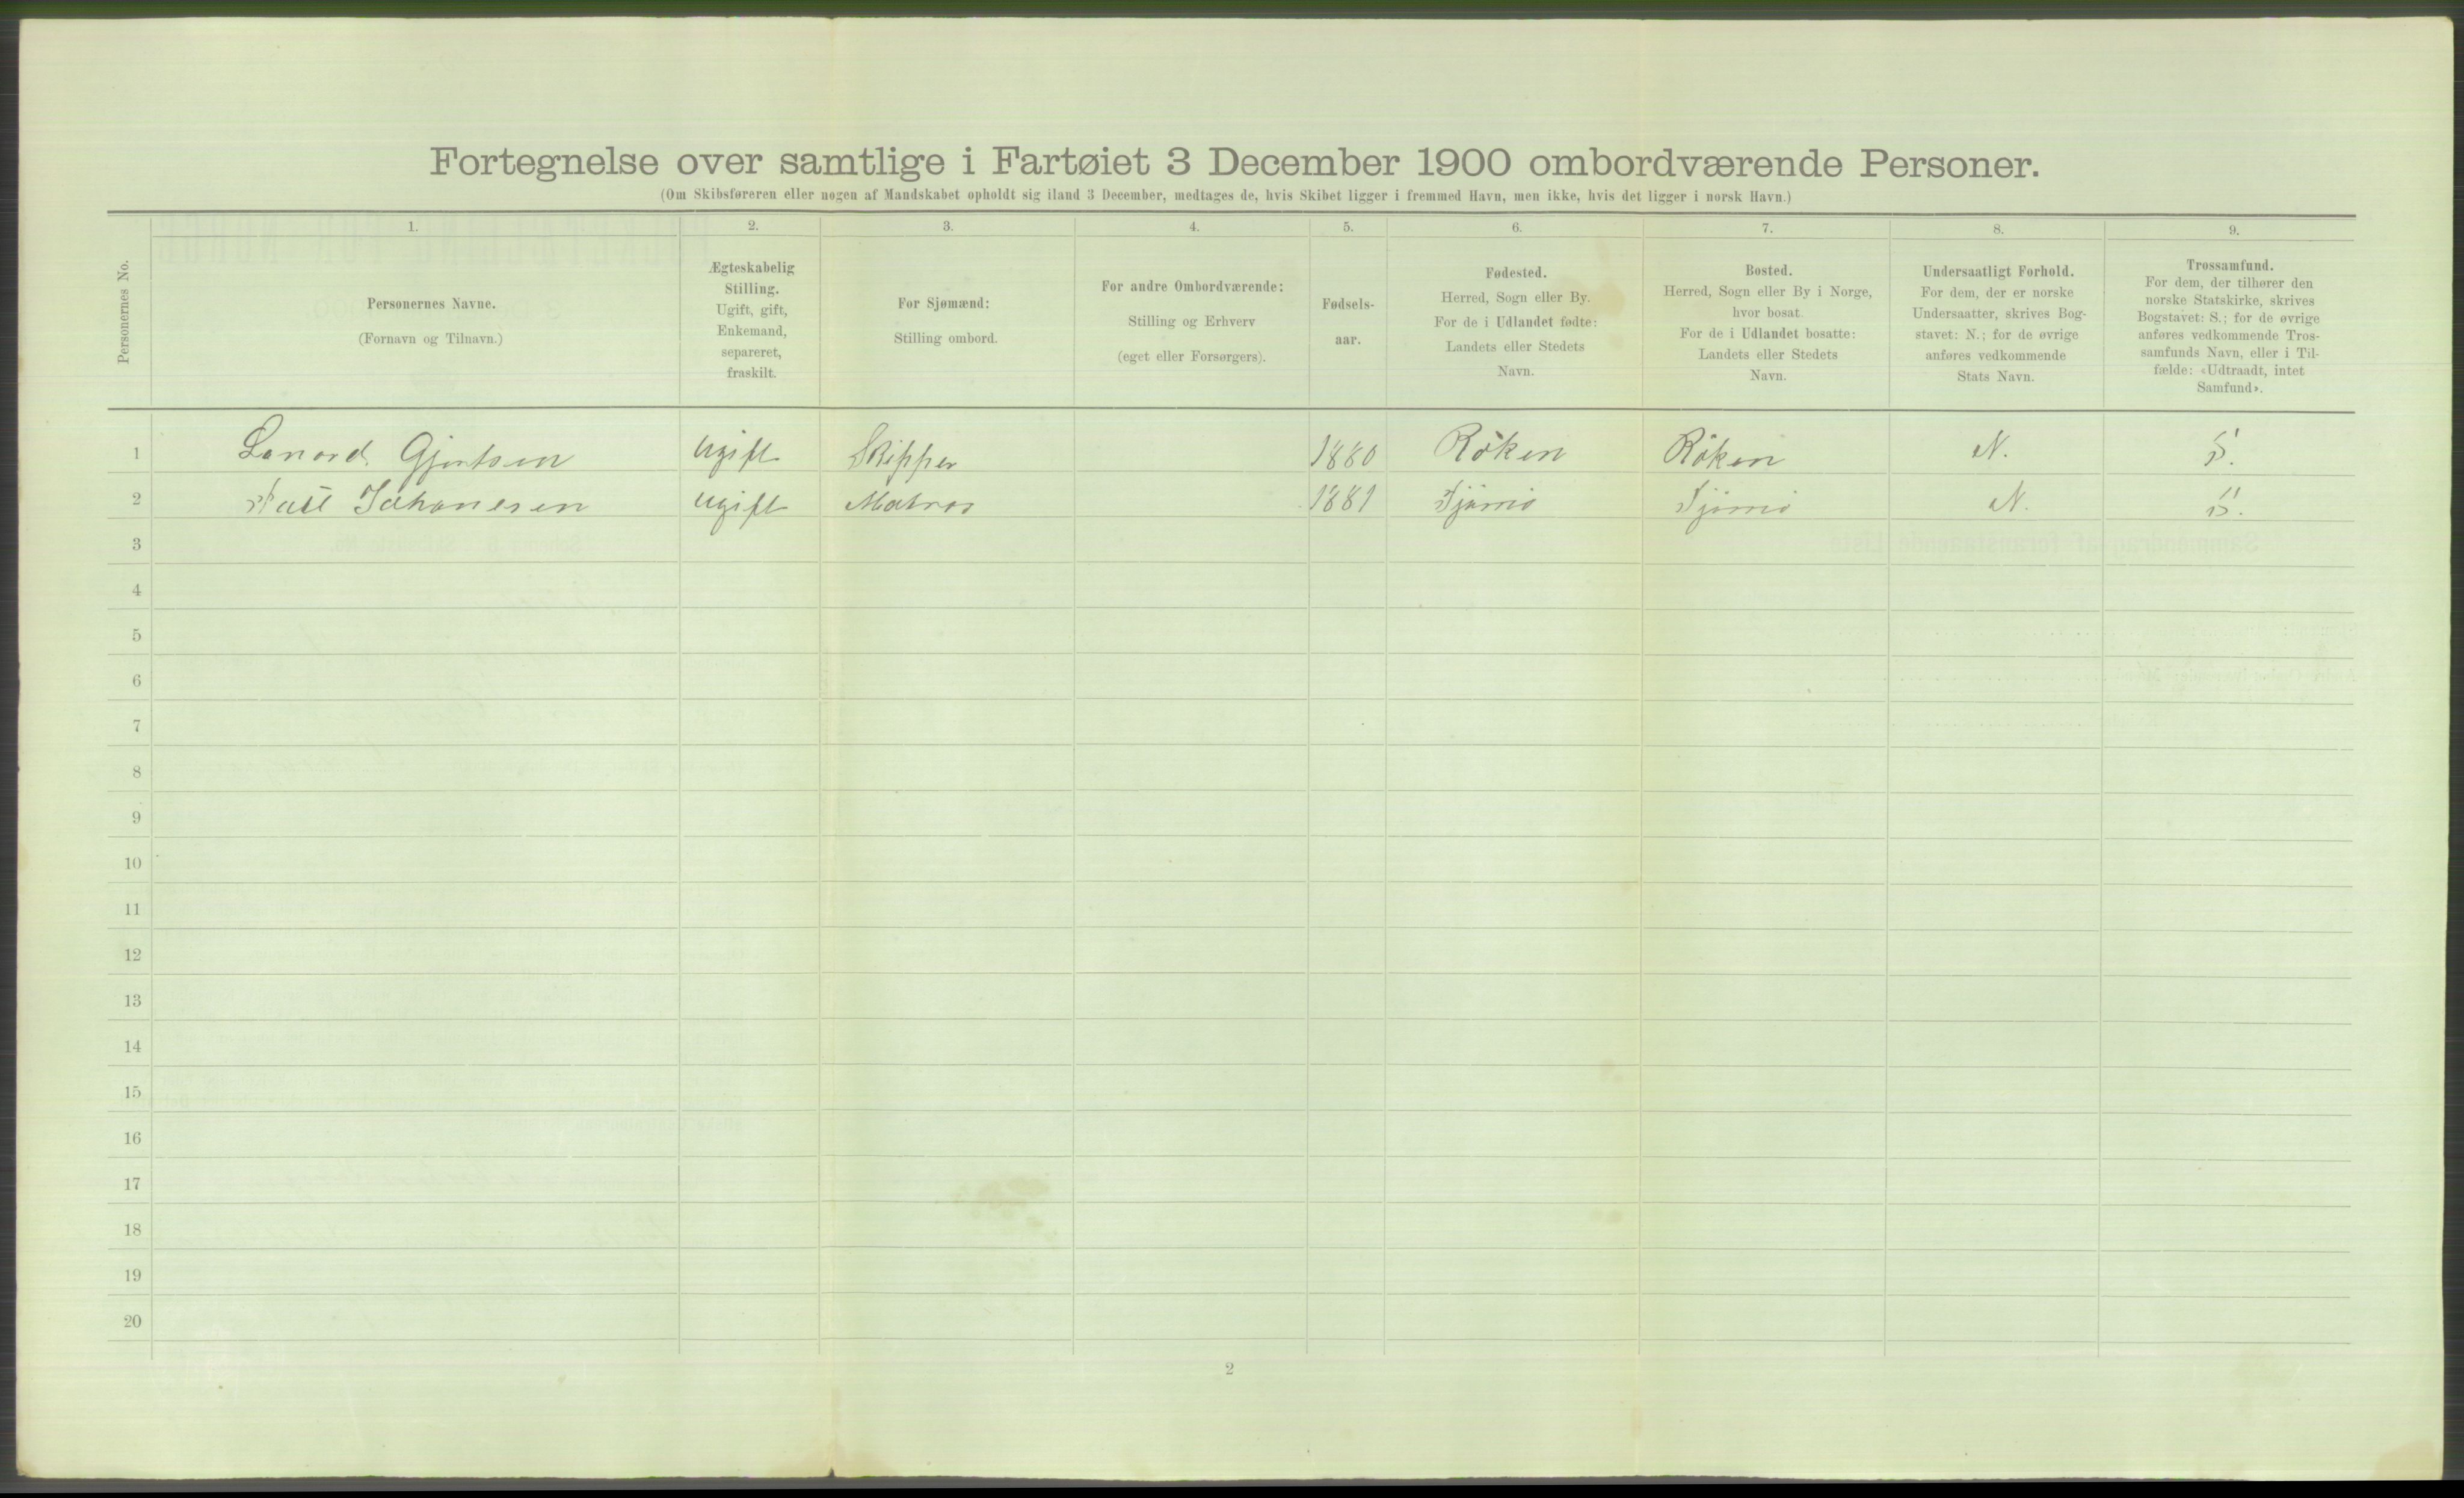 Fortegnelse over samtlige i Fartøiet 3 December 1900 ombordværende Personer.
(Om Skibsføreren eller nogen af Mandskabet opholdt sig iland 3 December, medtages de, hvis Skibet ligger i fremmed Havn, men ikke, hvis det ligger i norsk Havn.)
Personernes No.
1.
Personernes Navne.
(Fornavn og Tilnavn.)
2.
Ægteskabelig
Stilling.
Ugift, gift,
Enkemand,
separeret,
fraskilt.
3.
For Sjømænd:
Stilling ombord.
4.
For andre Ombordværende:
Stilling og Erhverv
(eget eller Forsørgers).
5.
Fødsels-
aar.
6.
Fødested.
Herred, Sogn eller By.
For de i Udlandet fødte:
Landets eller Stedets
Navn.
7.
Bosted.
Herred, Sogn eller By i Norge,
hvor bosat.
For de i Udlandet bosatte:
Landets eller Stedets
Navn.
8.
Undersaatligt Forhold.
For dem, der er norske
Undersaatter, skrives Bog-
stavet: N.; for de øvrige
anføres vedkommende
Stats Navn.
9.
Trossamfund.
For dem, der tilhører den
norske Statskirke, skrives
Bogstavet: S.; for de øvrige
anføres vedkommende Tros-
samfunds Navn, eller i Til-
fælde: «Udtraadt, intet
Samfund».
1 Lenard Gjertsen ugift Skipper 1880 Röken Röken N. S.
2 Johanesen ugift Matros 1881 Tjømö Tjømö N. S.
3
4
5
6
7
8
9
10
11
12
13
14
15
16
17
18
19
20
2